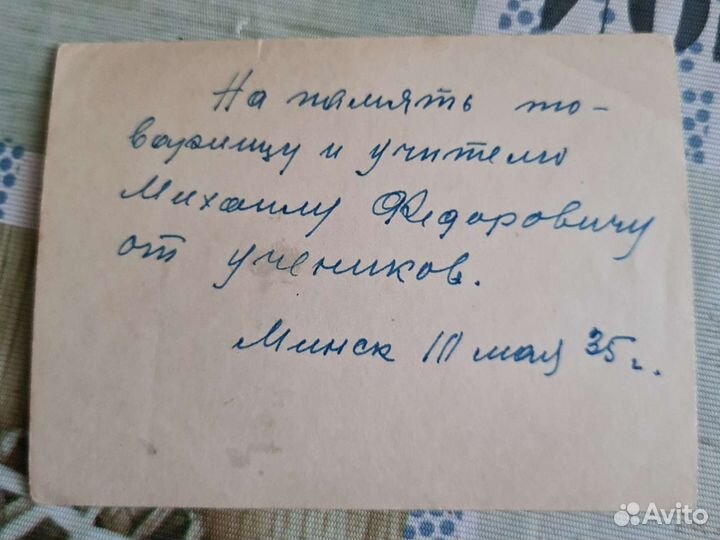 На память то-
варищу и учителю
Михаилу Федоровичу
от учеников.
Минск 10 мая 35 г.
Avito